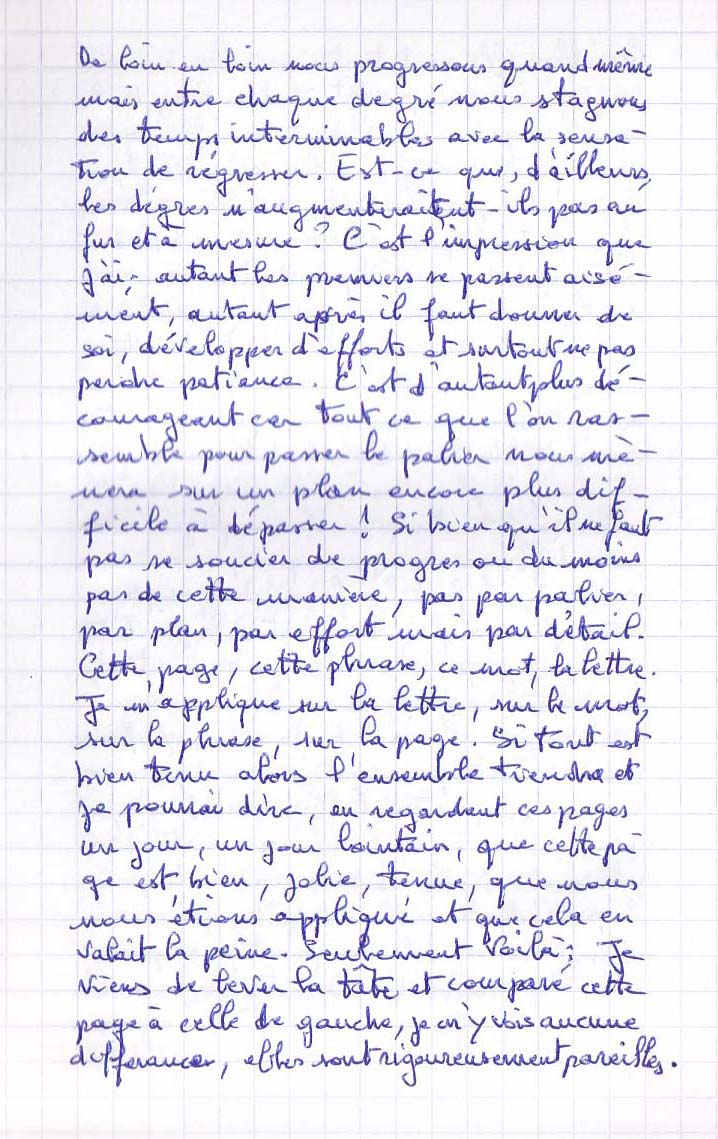 De loin en loin nous progressons quand même
mais entre chaque degré nous stagnons
des temps interminables avec la sensa-
tion de régresser. Est-ce que, d'ailleurs,
les dégres n'augmenteraient-ils pas au
fur et à mesure ? C'est l'impression que
j'ai : autant les premiers se passent aisé-
ment, autant après il faut donner de
soi, développer d'efforts et surtout ne pas
perdre patience. C'est d'autant plus dé-
courageant car tout ce que l'on ras-
semble pour passer le palier nous mè-
nera sur un plan encore plus dif-
ficile à dépasser ! Si bien qu'il ne faut
pas se soucier de progres ou du moins
pas de cette manière, pas par palier,
par plan, par effort mais par détail.
Cette page, cette phrase, ce mot, la lettre.
Je m'applique sur la lettre, sur le mot,
sur la phrase, sur la page. Si tout est
bien tenu alors l'ensemble tiendra et
je pourrai dire, en regardant ces pages
un jour, un jour lointain, que cette pa
ge est bien, jolie, tenue, que nous
nous étions appliqué et que cela en
valait la peine. Seulement voilà ; Je
viens de lever la tâte et comparé cette
page à celle de gauche, je n'y vois aucune
differance, elles sont rigoureusement pareilles.